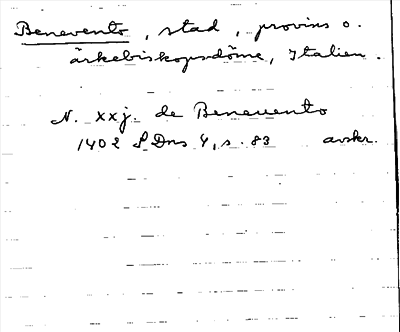 Benevento, stad, provins o.
ärkebiskopsdöme, Italien.
N. xxj. de Beneuento
1402 SDns 4, s. 83 avskr.